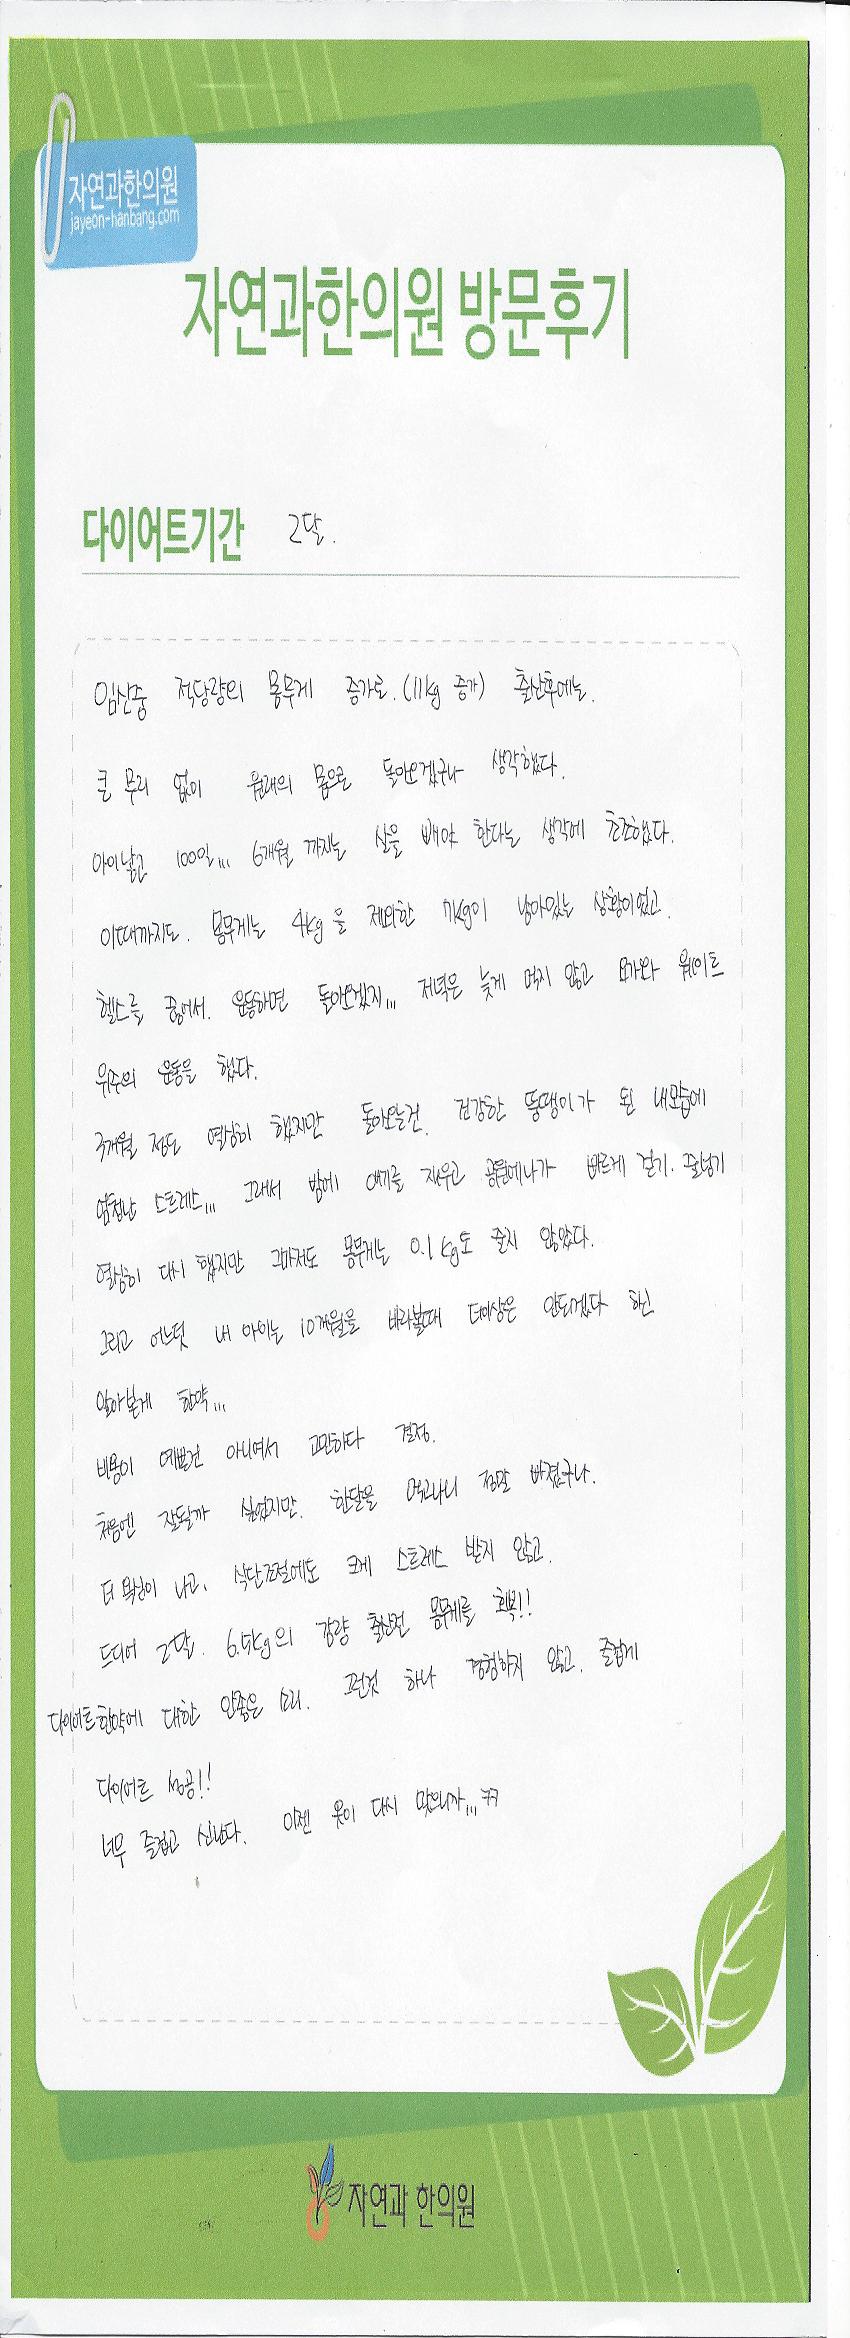 자연과한의원
jayeon-hanbang.com
자연과한의원 방문후기
다이어트기간 2달.
임신중 적당량의 몸무게 증가로.(11kg 증가) 출산후에는.
큰 무리 없이 원래의 몸으로 돌아오겠구나 생각했다.
아이낳고 100일... 6개월 까지는 살을 빼야 한다는 생각에 초조했다.
이때까지도. 몸무게는 4kg을 제외한 7kg이 남아있는 상황이었고.
헬스를 끊어서. 운동하면 돌아오겠지... 저녁은 늦게 먹지 않고 요가와 웨이트
위주의 운동을 했다.
3개월 정도 열심히 했지만 돌아오는건. 건강한 뚱땡이가 된 내모습에
엄청난 스트레스... 그래서 밤에 애기를 재우고 공원에나가 빠르게 걷기. 줄넘기
열심히 다시 했지만 그마저도 몸무게는 0.1kg도 줄지 않았다.
그리고 어느덧 내 아이는 10개월을 바라볼때 더이상은 안되겠다 하신
알아본게 한약...
비용이 예쁜건 아니여서 고민하다 결정.
처음엔 잘될까 싶었지만. 한달을 먹고나니 정말 빠졌구나.
더 욕심이 나고, 식단조절에도 크게 스트레스 받지 않고.
드디어 2달. 6.5kg의 감량 출산전 몸무게를 회복!!
다이어트한약에 대한 안좋은 소리. 그런것 하나 경험하지 않고. 즐겁게
다이어트 성공!!
너무 즐겁고 신난다. 이젠 옷이 다시 맞으니까... ㅋㅋ
자연과 한의원